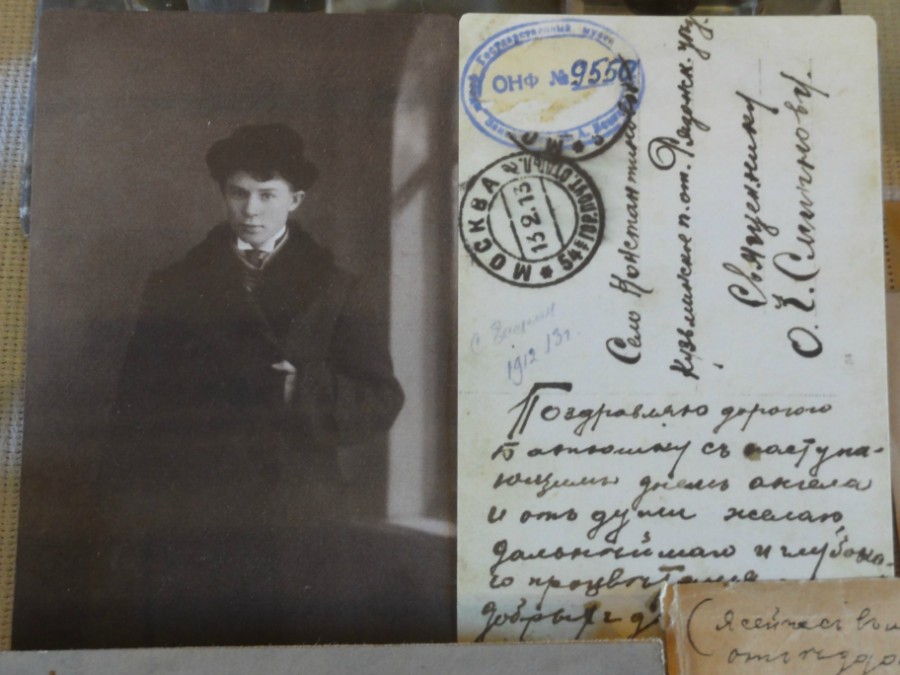 Государственный музей
ОНФ № 9550
МОСКВА
13.2.13
Село Константиново
Кузьминское п.от. Рязанск. губ.
Священнику
О. І. Смирнову.
1912 13 г.
Поздравляю дорогого
Батюшку съ наступа-
ющимъ днемъ ангела
и отъ души желаю
дальнѣйшаго и глубока-
го процвѣтания
добрыхъ
(я сейчасъ